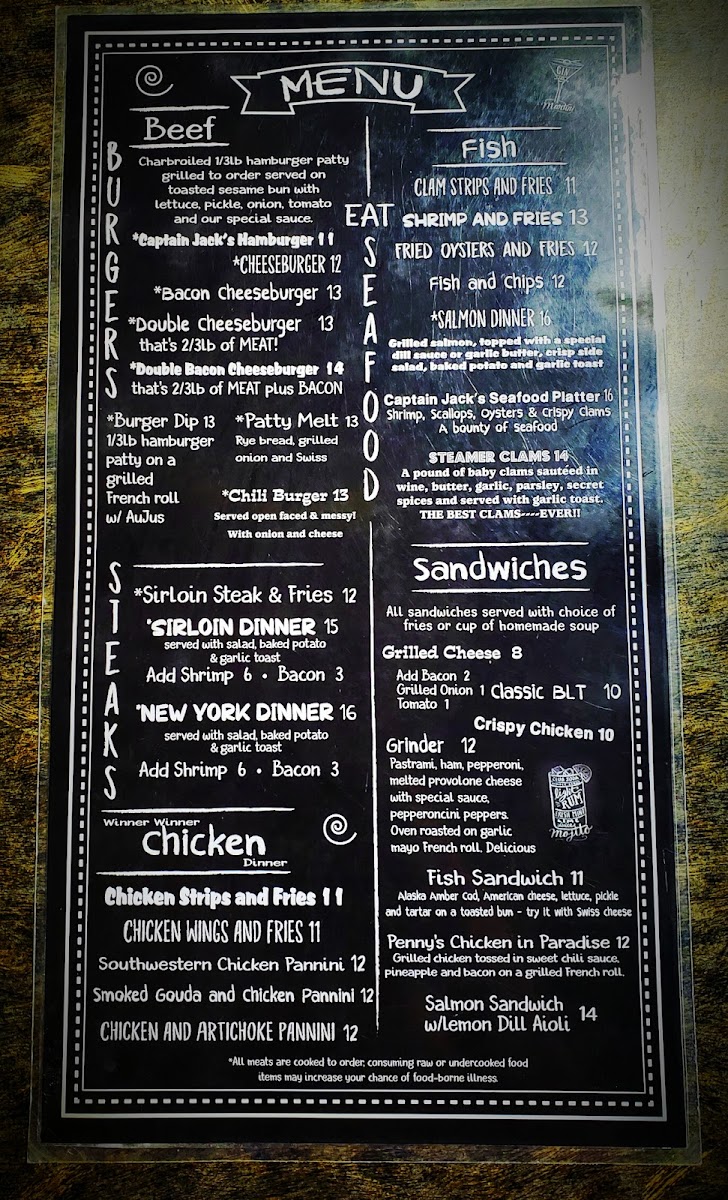 MENU
GIN
Martini
Beef
BURGERS
Charbroiled 1/3lb hamburger patty
grilled to order served on
toasted sesame bun with
lettuce, pickle, onion, tomato
and our special sauce.
*Captain Jack's Hamburger 11
*CHEESEBURGER 12
*Bacon Cheeseburger 13
*Double Cheeseburger 13
that's 2/3lb of MEAT!
*Double Bacon Cheeseburger 14
that's 2/3lb of MEAT plus BACON
*Burger Dip 13
1/3lb hamburger
patty on a
grilled
French roll
w/ AuJus
*Patty Melt 13
Rye bread, grilled
onion and Swiss
*Chili Burger 13
Served open faced & messy!
With onion and cheese
STEAKS
*Sirloin Steak & Fries 12
*SIRLOIN DINNER 15
served with salad, baked potato
& garlic toast
Add Shrimp 6 • Bacon 3
*NEW YORK DINNER 16
served with salad, baked potato
& garlic toast
Add Shrimp 6 • Bacon 3
Winner Winner
Chicken
Dinner
Chicken Strips and Fries 11
CHICKEN WINGS AND FRIES 11
Southwestern Chicken Pannini 12
Smoked Gouda and Chicken Pannini 12
CHICKEN AND ARTICHOKE PANNINI 12
EAT
SEAFOOD
Fish
CLAM STRIPS AND FRIES 11
SHRIMP AND FRIES 13
FRIED OYSTERS AND FRIES 12
Fish and Chips 12
*SALMON DINNER 16
Grilled salmon, topped with a special
dill sauce or garlic butter, crisp side
salad, baked potato and garlic toast
Captain Jack's Seafood Platter 16
Shrimp, Scallops, Oysters & Crispy Clams
A bounty of seafood
STEAMER CLAMS 14
A pound of baby clams sautéed in
wine, butter, garlic, parsley, secret
spices and served with garlic toast.
THE BEST CLAMS----EVER!!
Sandwiches
All sandwiches served with choice of
fries or cup of homemade soup
Grilled Cheese 8
Add Bacon 2
Grilled Onion 1
Tomato 1
Classic BLT 10
Crispy Chicken 10
Grinder 12
Pastrami, ham, pepperoni,
melted provolone cheese
with special sauce,
pepperoncini peppers.
Oven roasted on garlic
mayo French roll. Delicious
CLUB SODA
light
RUM
FRESH MINT
LIME
mojito
Fish Sandwich 11
Alaska Amber Cod, American cheese, lettuce, pickle
and tartar on a toasted bun - try it with Swiss cheese
Penny's Chicken in Paradise 12
Grilled chicken tossed in sweet chili sauce,
pineapple and bacon on a grilled French roll.
Salmon Sandwich
w/Lemon Dill Aioli 14
*All meats are cooked to order, consuming raw or undercooked food
items may increase your chance of food-borne illness.